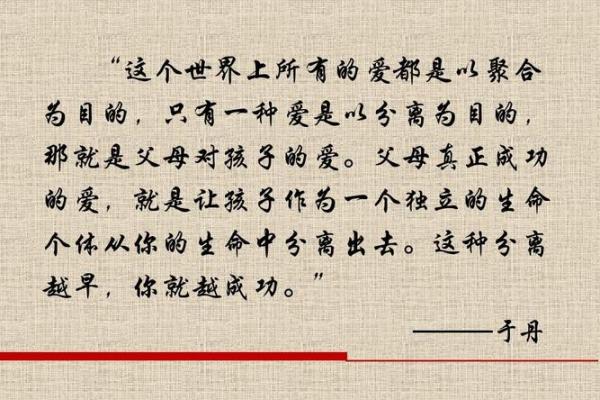 “这个世界上所有的爱都是以聚合
为目的，只有一种爱是以分离为目的，
那就是父母对孩子的爱。父母真正成功
的爱，就是让孩子作为一个独立的生命
个体从你的生命中分离出去。这种分离
越早，你就越成功。”
———于丹